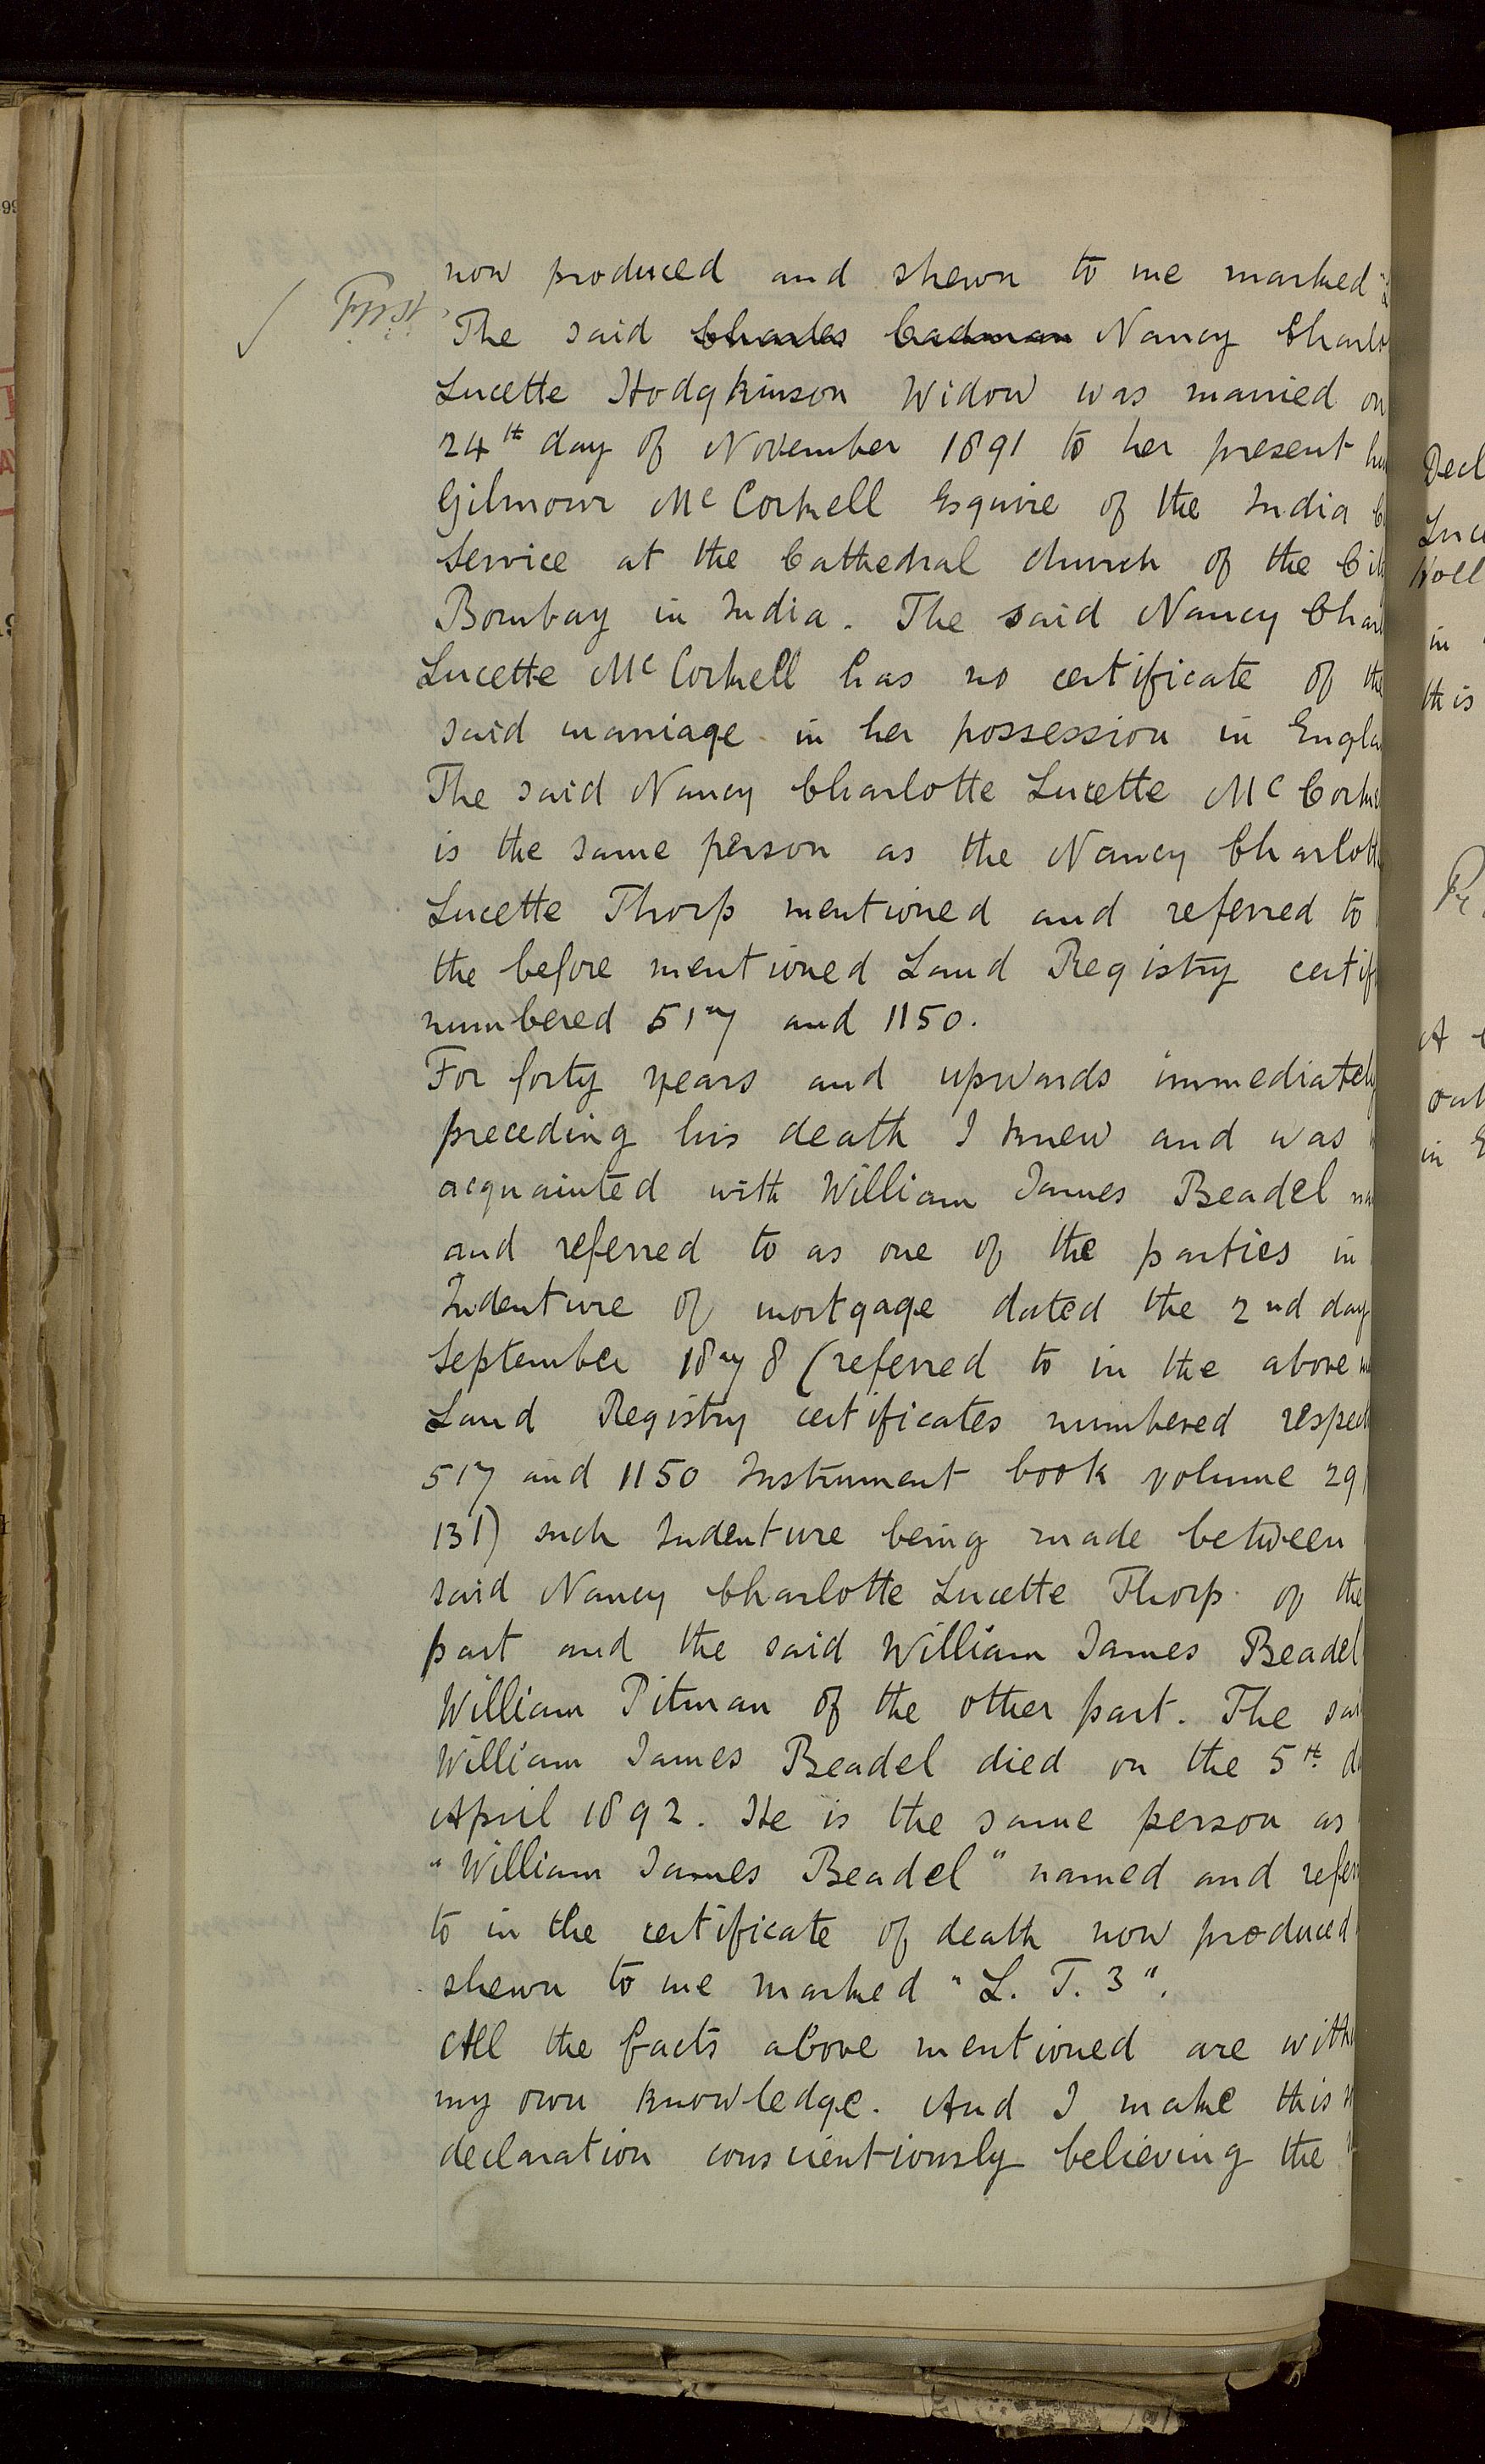 now produced and shewn to me marked
First
The said Charles Cadman Nancy Charlo
Lucette Hodgkinson Widow was married on
24th day of November 1891 to her present hu
Gilmour McCorkell Esquire of the India C
Service at the Cathedral church of the Cit
Bombay in India. The said Nancy Charl
Lucette McCorkell has no certificate of the
said marriage in her possession in Engla
The said Nancy Charlotte Lucette McCorke
is the same person as the Nancy Charlott
Lucette Thorp mentioned and referred to
the before mentioned Land Registry certif
numbered 517 and 1150.
For forty years and upwards immediately
preceding his death I knew and was
acquainted with William James Beadel na
and referred to as one of the parties in
Indenture of mortgage dated the 2nd day
September 1878 (referred to in the above
Land Registry certificates numbered respect
517 and 1150 Instrument book volume 29
131) such Indenture being made between
said Nancy Charlotte Lucette Thorp of the
part and the said William James Beadel
William Pitman of the other part. The sai
William James Beadel died on the 5th d
April 1892. He is the same person as
"William James Beadel" named and refer
to in the certificate of death now produced
shewn to me marked "L. T. 3".
All the facts above mentioned are with
my own knowledge. And I make this
declaration conscientiously believing the
Decl
Luce
in
this
A
in